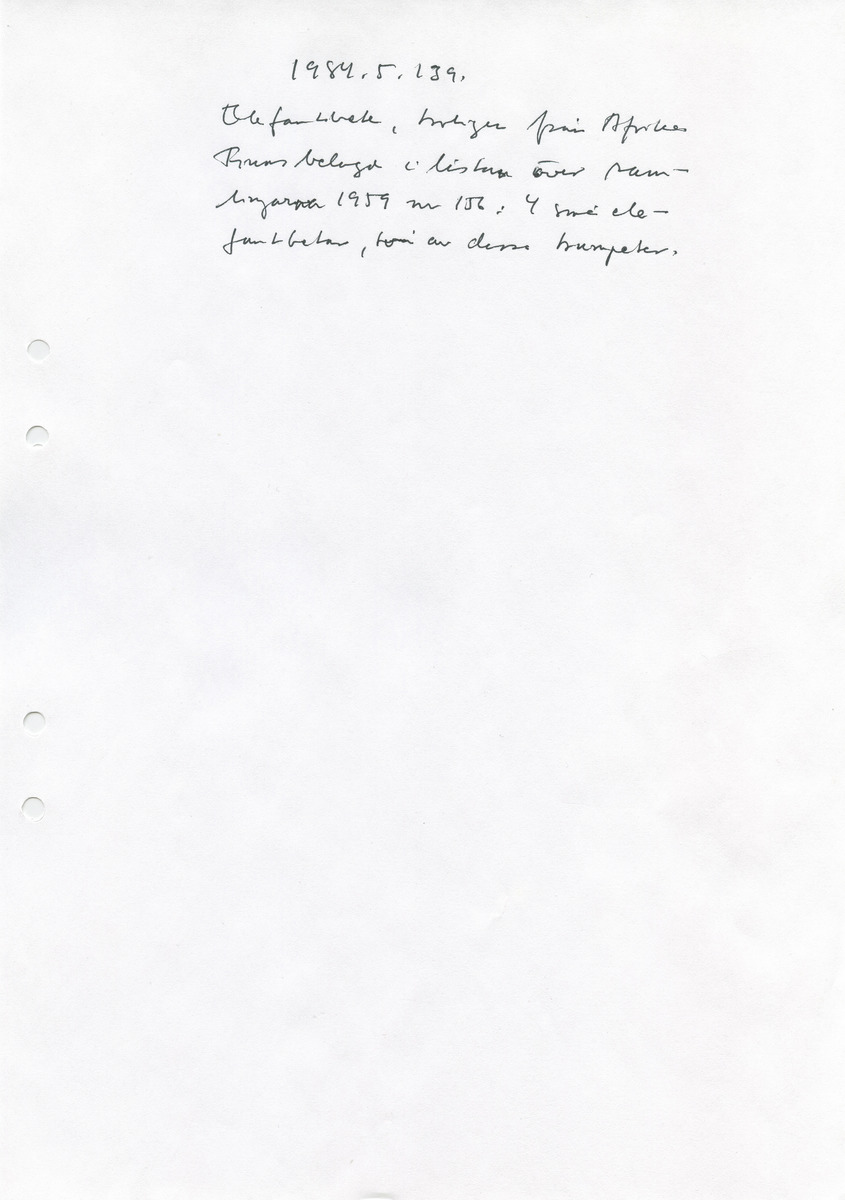 1984.5.139.
Elefantbete, troligen från Afrika
Finns belagd i listan över sam-
lingarna 1959 nr 156: 4 små ele-
fantbetar, två av dessa trumpeter.